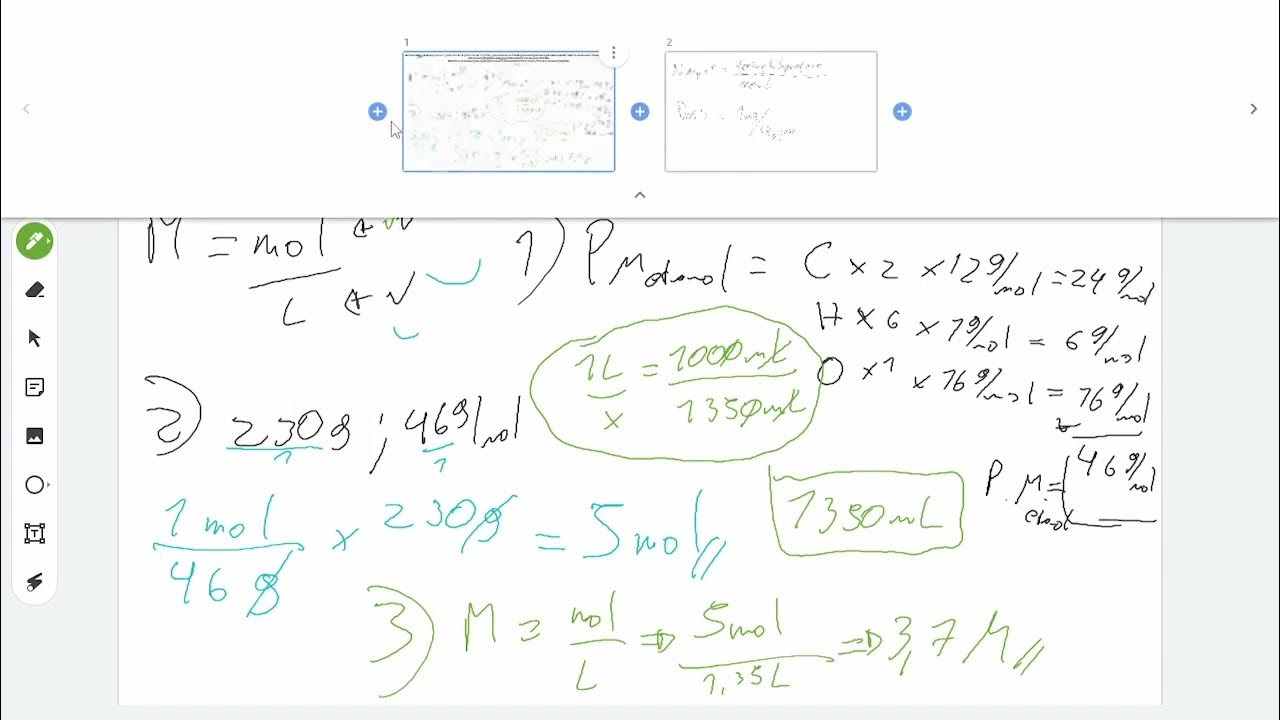 1
2
M = mol
L
1) PMetanol = C x 2 x 12g/mol = 24 g/mol
H x 6 x 1g/mol = 6g/mol
O x 1 x 16g/mol = 16g/mol
P.M. etanol = 46g/mol
1L = 1000mL
x 1350mL
1350mL
2) 230g ; 46g/mol
1 1
1 mol x 230g = 5 mol
46 g
3) M = mol ⇒ 5mol ⇒ 3,7 M
L 1,35L